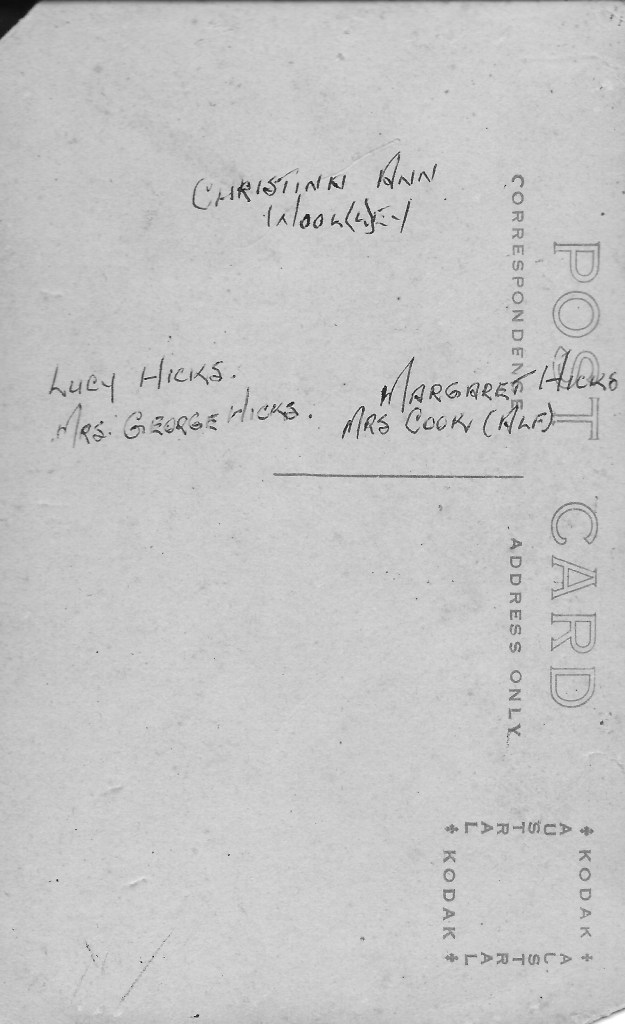 CHRISTINA ANN
WOOL(L)EY
LUCY HICKS.
MRS. GEORGE HICKS.
MARGARET HICKS
MRS COOK (ALF)
POST CARD
CORRESPONDENCE
ADDRESS ONLY
KODAK
AUSTRAL
KODAK
AUSTRAL